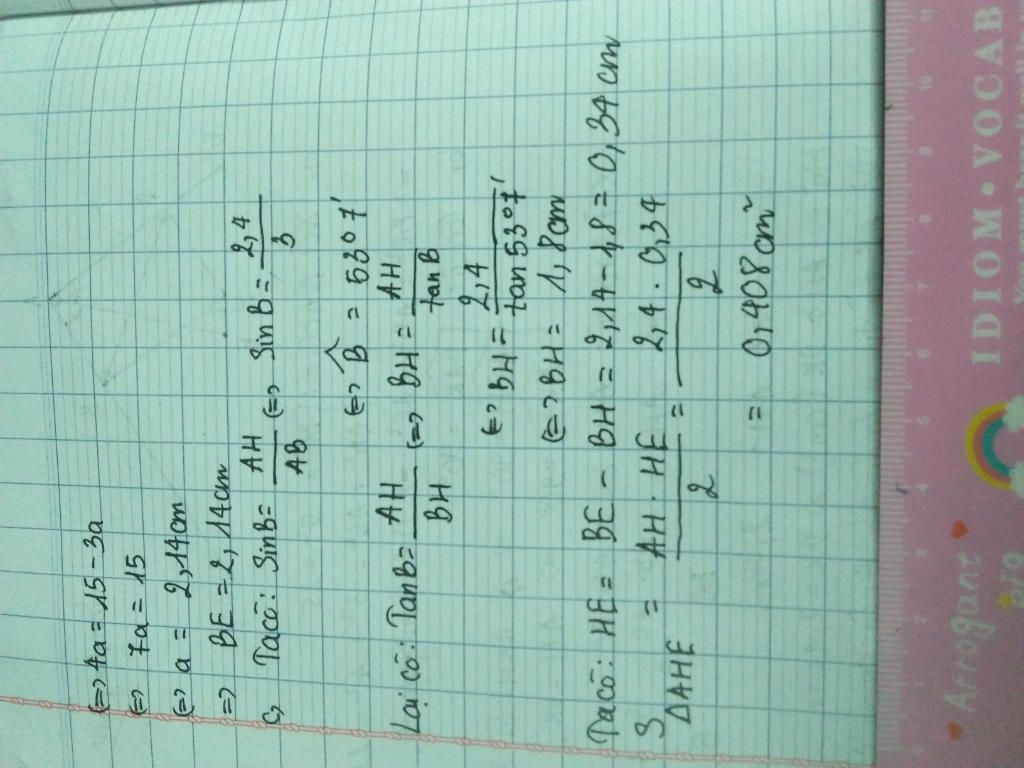 (=> 4a = 15 - 3a
(=> 7a = 15
(=> a = 2,14cm
=> BE = 2,14cm
c, Ta có: SinB = AH/AB (=> SinB = 2,4/3
(=> B̂ = 53°7'
Lại có: TanB = AH/BH (=> BH = AH/tanB
(=> BH = 2,4/tan53°7'
(=> BH = 1,8cm
Ta có: HE = BE - BH = 2,14 - 1,8 = 0,34cm
S ΔAHE = AH . HE/2 = 2,4 . 0,34/2
= 0,408cm²
IDIOM • VOCAB
Arrogant